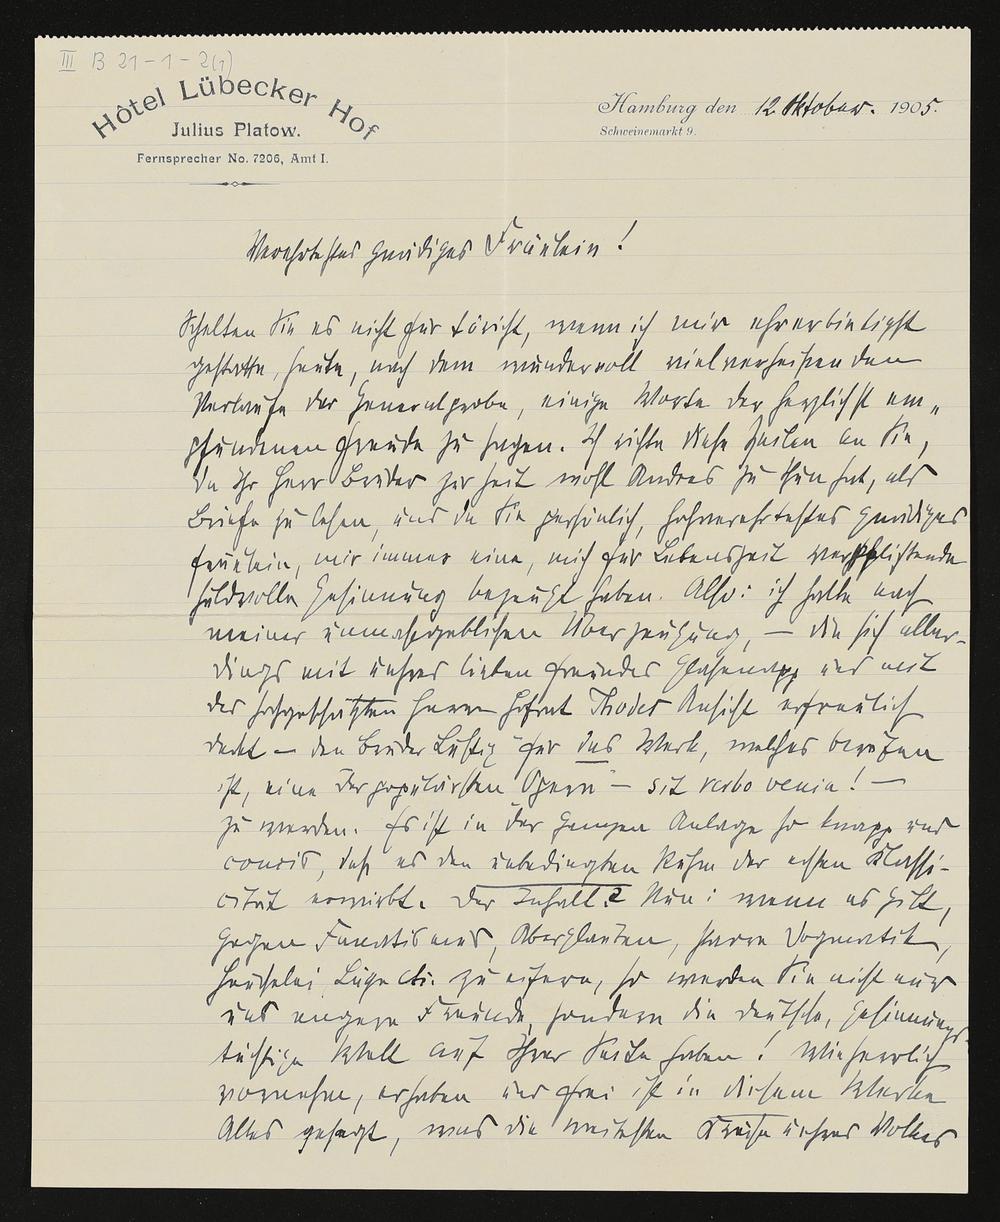 III B 21-1-2(1)
Hôtel Lübecker Hof
Julius Platow.
Fernsprecher No. 7206, Amt I.
Hamburg den 12 Oktober. 1905.
Schweinemarkt 9.
Verehrtestes gnädiges Fräulein!
Schelten Sie es nicht für töricht, wenn ich mir ehrerbietigst
gestatte, heute, nach dem wundervoll vielverheißenden
Verlaufe der Generalprobe, einige Worte der herzlichst em„
pfundenen Freude zu sagen. Ich richte diese Zeilen an Sie,
da Ihr Herr Bruder zur Zeit wohl Andres zu thun hat, als
Briefe zu lesen, und da Sie persönlich, hochverehrtestes gnädiges
Fräulein, mir immer eine, mich für Lebenszeit verpflichtende
huldvolle Gesinnung bezeugt haben. Also: ich halte nach
meiner unmaßgeblichen Überzeugung, – die sich aller-
dings mit unsres lieben Freundes Glasenapp und mit
des hochgeschätzten Herrn Hofrat Thodes Ansicht erfreulich
deckt – den Bruder Lustig für das Werk, welches berufen
ist, eine der populärsten Opern – sit verbo venia! –
zu werden. Es ist in der ganzen Anlage so knapp und
concis, daß es den unbedingten Ruhm der echten Klassi-
cität erwirbt. Der Inhalt? Nun: wenn es gilt,
gegen Fanatismus, Aberglauben, starre Dogmatik,
Heuchelei, Lüge etc. zu eifern, so werden Sie nicht nur
uns engere Freunde, sondern die deutsche, gesinnungs-
tüchtige Welt auf Ihrer Seite haben! Wie herrlich
vornehm, erhaben und frei ist in diesem Werke
Alles gesagt, was die weitesten Kreise unsres Volkes